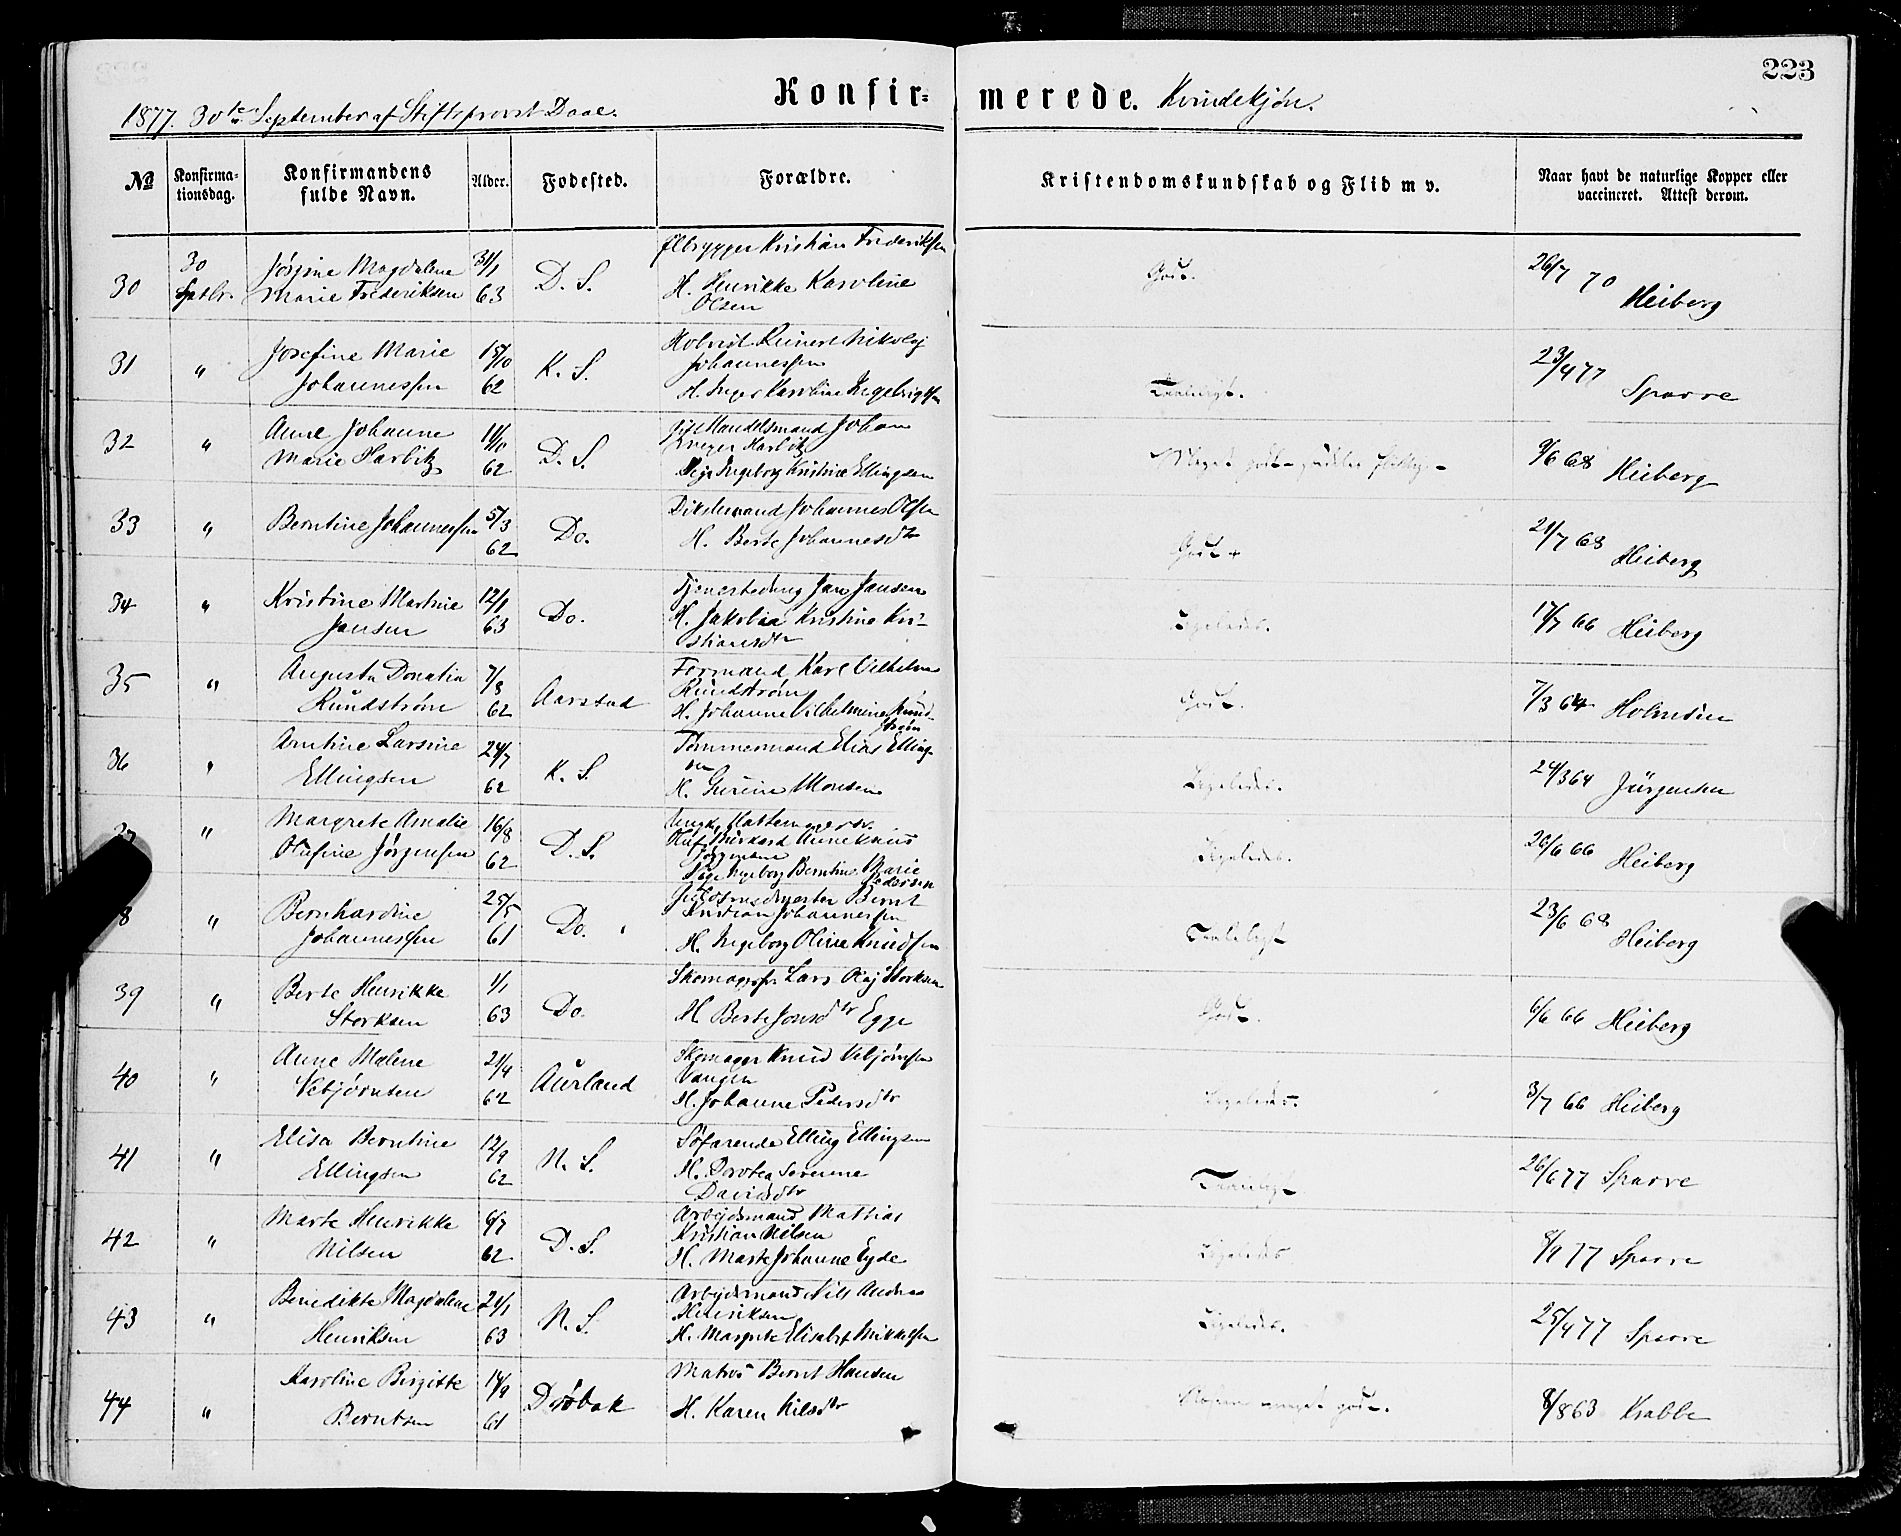 223
Konfirmerede. Kvindekjøn.
1877. 30te September af Stiftsprovst Daae.
No
Konfirmationsdag.
Konfirmandens fulde Navn.
Alder.
Fødested.
Forældre.
Kristendomskundskab og Flid m v.
Naar havt de naturlige Kopper eller vaccineret. Attest derom.
Ølbrygger Kristian Frederiksen
30 30 Septbr. Jørgine Magdalene Marie Frederiksen 31/1 63 D. S. H. Henrikke Karoline Olsen Godt. 26/7 70 Heiberg
31 " Josefine Marie Johannessen 15/10 62 K. S. Reinert Nikolaj Johannessen H. Inger Karoline Taaleligt. 23/4 77 Sparre
32 " Anne Johanne Marie Harbitz 11/10 62 D. S. Handelsmand Johan Harbitz Pige Ingeborg Kristine Ellingsen Meget godt 9/6 68 Heiberg
33 " Berntine Johannessen 5/3 62 Do. Johannes Olsen H. Berte Johannesdtr Godt + 21/7 68 Heiberg
34 " Kristine Martine Jansen 12/1 63 Do. Tjenestedreng Jan Jansen H. Jakobia Kristine Kristiansdtr Ligeledes. 17/7 66 Heiberg
35 " Augusta Donatia Rundstrøm 7/8 62 Aarstad Formand Karl Vilhelm Rundstrøm H. Johanne Vilhelmine Rundstrøm Godt. 7/3 64 Holmsen
36 " Arntine Larsine Ellingsen 24/7 62 K. S. Tømmermand Elias Ellingsen H. Gurine Monsen Ligeledes. 24/3 64 Jürgensen
" Margrete Amalie Olufine Jørgensen 16/8 62 D. S. Ungk. Hattemager Oluf Jørgensen Pige Ingeborg Berntine Marie Pedersen Ligeledes. 26/6 66 Heiberg
8 " Bernhardine Johannessen 25/5 61 Do. Bernt Kristian Johannessen H. Ingeborg Oline Knudsen Taaleligt 23/6 68 Heiberg
39 " Berte Henrikke Storksen 1/1 63 Do. Lars Olaj Storksen H. Berte Jonsdtr Egge Godt. 6/6 66 Heiberg
40 " Anne Malene Vebjørnsen 21/4 62 Aurland Skomager Knud Vebjørnsen Vangen H. Johanne Pedersdtr Ligeledes. 3/7 66 Heiberg
41 " Elisa Berntine Ellingsen 12/9 62 N. S. Søfarende Elling Ellingsen H. Dorotea Severine Davidsdtr Taaleligt 26/6 77 Sparre
42 " Marte Henrikke Nilsen 6/7 62 D. S. Arbejdsmand Mattias Kristian Nilsen H. Marte Johanne Eyde Ligeledes 8/9 77 Sparre
43 " Benedikte Magdalene Henriksen 21/1 63 N. S. Arbejdsmand Nils Andreas Henriksen H. Margrete Elisabet Mikkelsen Ligeledes. 25/4 77 Sparre
44 " Karoline Birgitte Berntsen 14/9 61 Drøbak Matros Bernt Hansen H. Karen Nilsdtr meget godt. 8/8 63 Krabbe